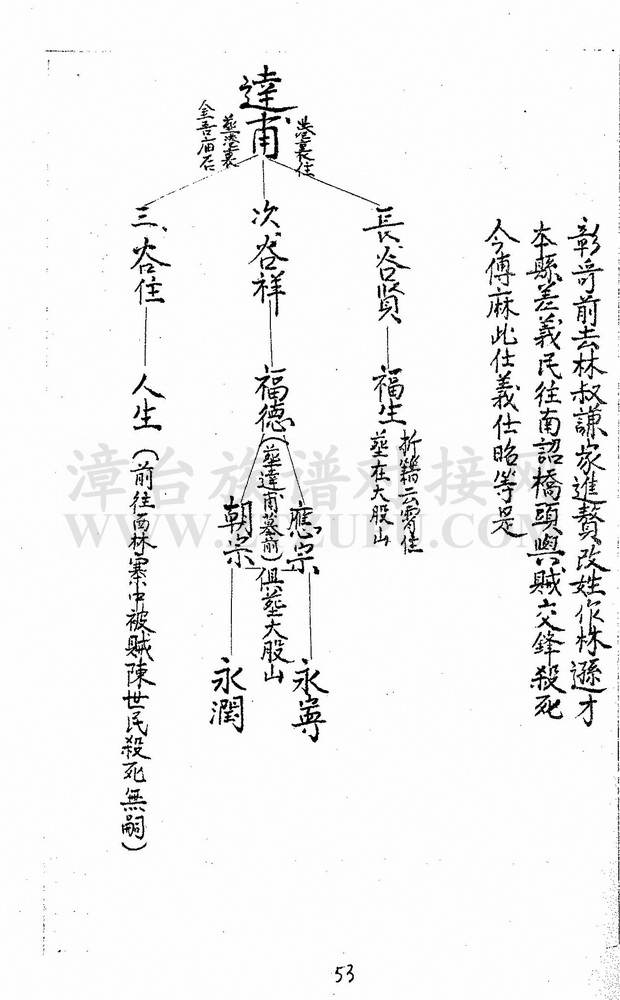 彰哥前去林叔謙家進贅改姓作林遜才
本縣差義民往南詔橋頭與賊交鋒殺死
今傳麻此仕義仕昭等是
達甫
港裏住
葬港裏
金吾庙后
長谷賢
福生
折籍云霄住
葬在大股山
次谷祥
福德
(葬達甫墓前)
應宗
朝宗
俱葬大股山
永寧
永潤
三谷住
人生
(前往西林寨中被賊陳世民殺死無嗣)
漳台族谱对接网
53